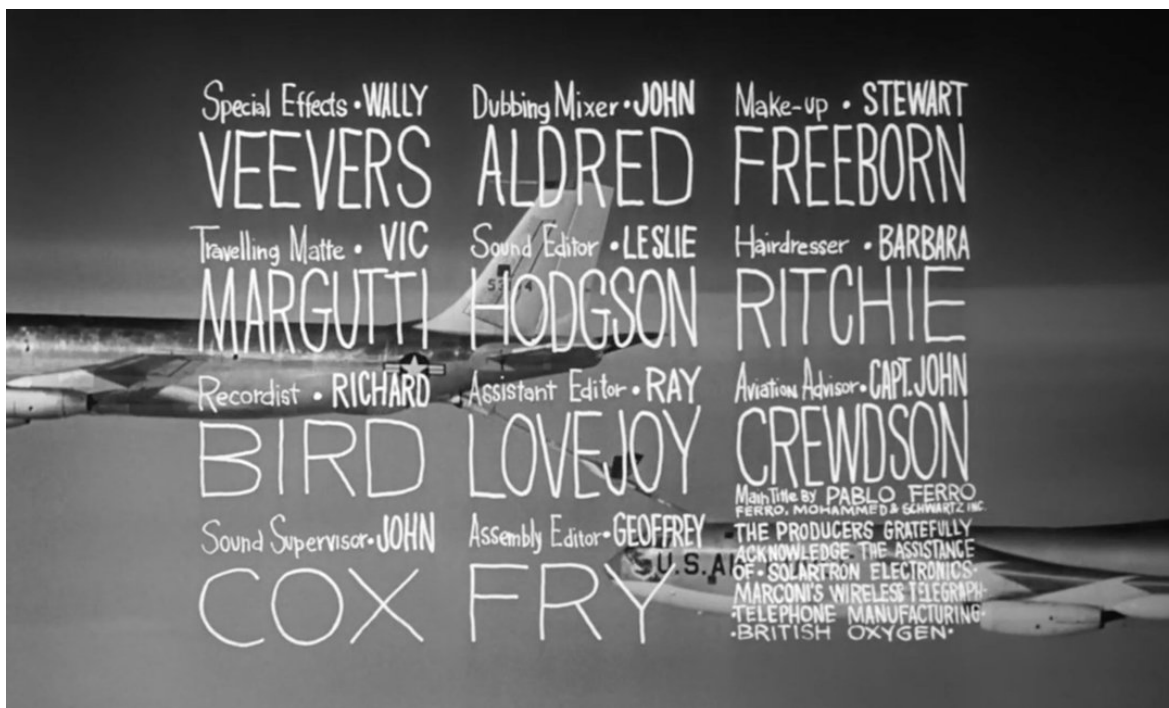 Special Effects • WALLY
VEEVERS
Travelling Matte • VIC
MARGUTTI
Recordist • RICHARD
BIRD
Sound Supervisor • JOHN
COX
Dubbing Mixer • JOHN
ALDRED
Sound Editor • LESLIE
HODGSON
Assistant Editor • RAY
LOVEJOY
Assembly Editor • GEOFFREY
FRY
Make-up • STEWART
FREEBORN
Hairdresser • BARBARA
RITCHIE
Aviation Advisor • CAPT. JOHN
CREWDSON
Main Title by PABLO FERRO
FERRO, MOHAMMED & SCHWARTZ INC.
THE PRODUCERS GRATEFULLY
ACKNOWLEDGE THE ASSISTANCE
OF • SOLARTRON ELECTRONICS •
MARCONI'S WIRELESS TELEGRAPH •
• TELEPHONE MANUFACTURING •
• BRITISH OXYGEN •
U.S. AI